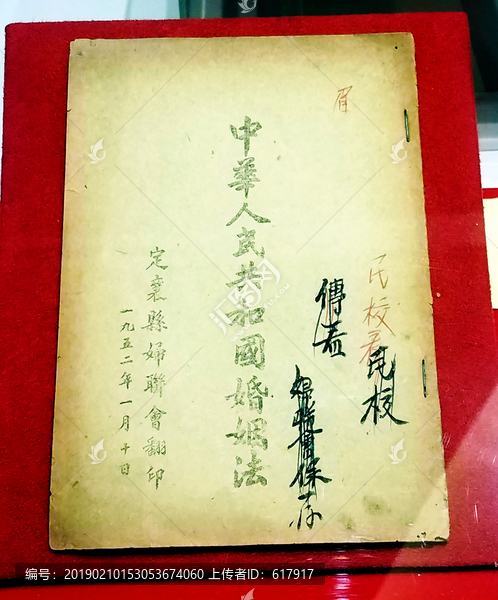 民校看
民校
傳看
保存
中華人民共和國婚姻法
定襄縣婦聯會翻印
一九五二年一月十日
编号:20190210153053674060 上传者ID:617917